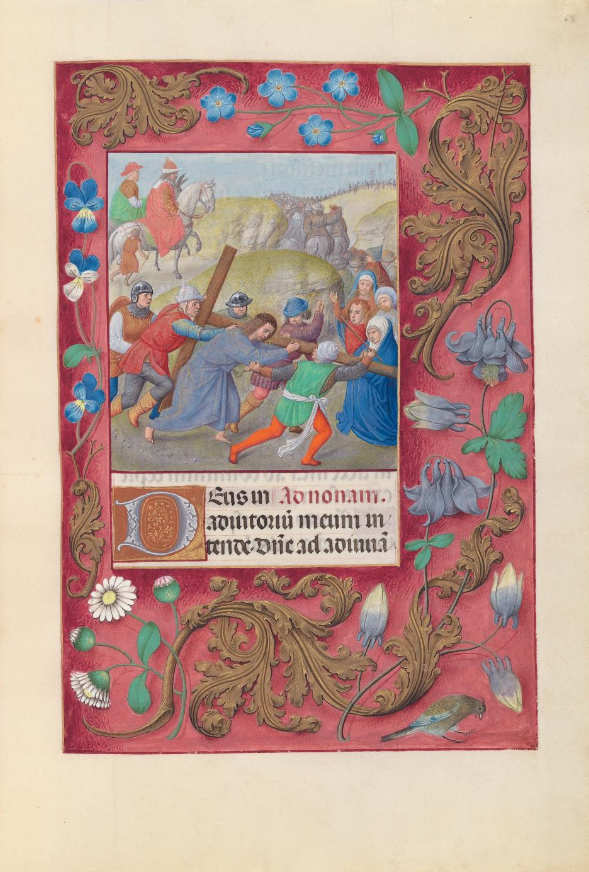 Deus in Ad nonam.
adiutoriū meum in
tende. Dn̄e ad adiuuā